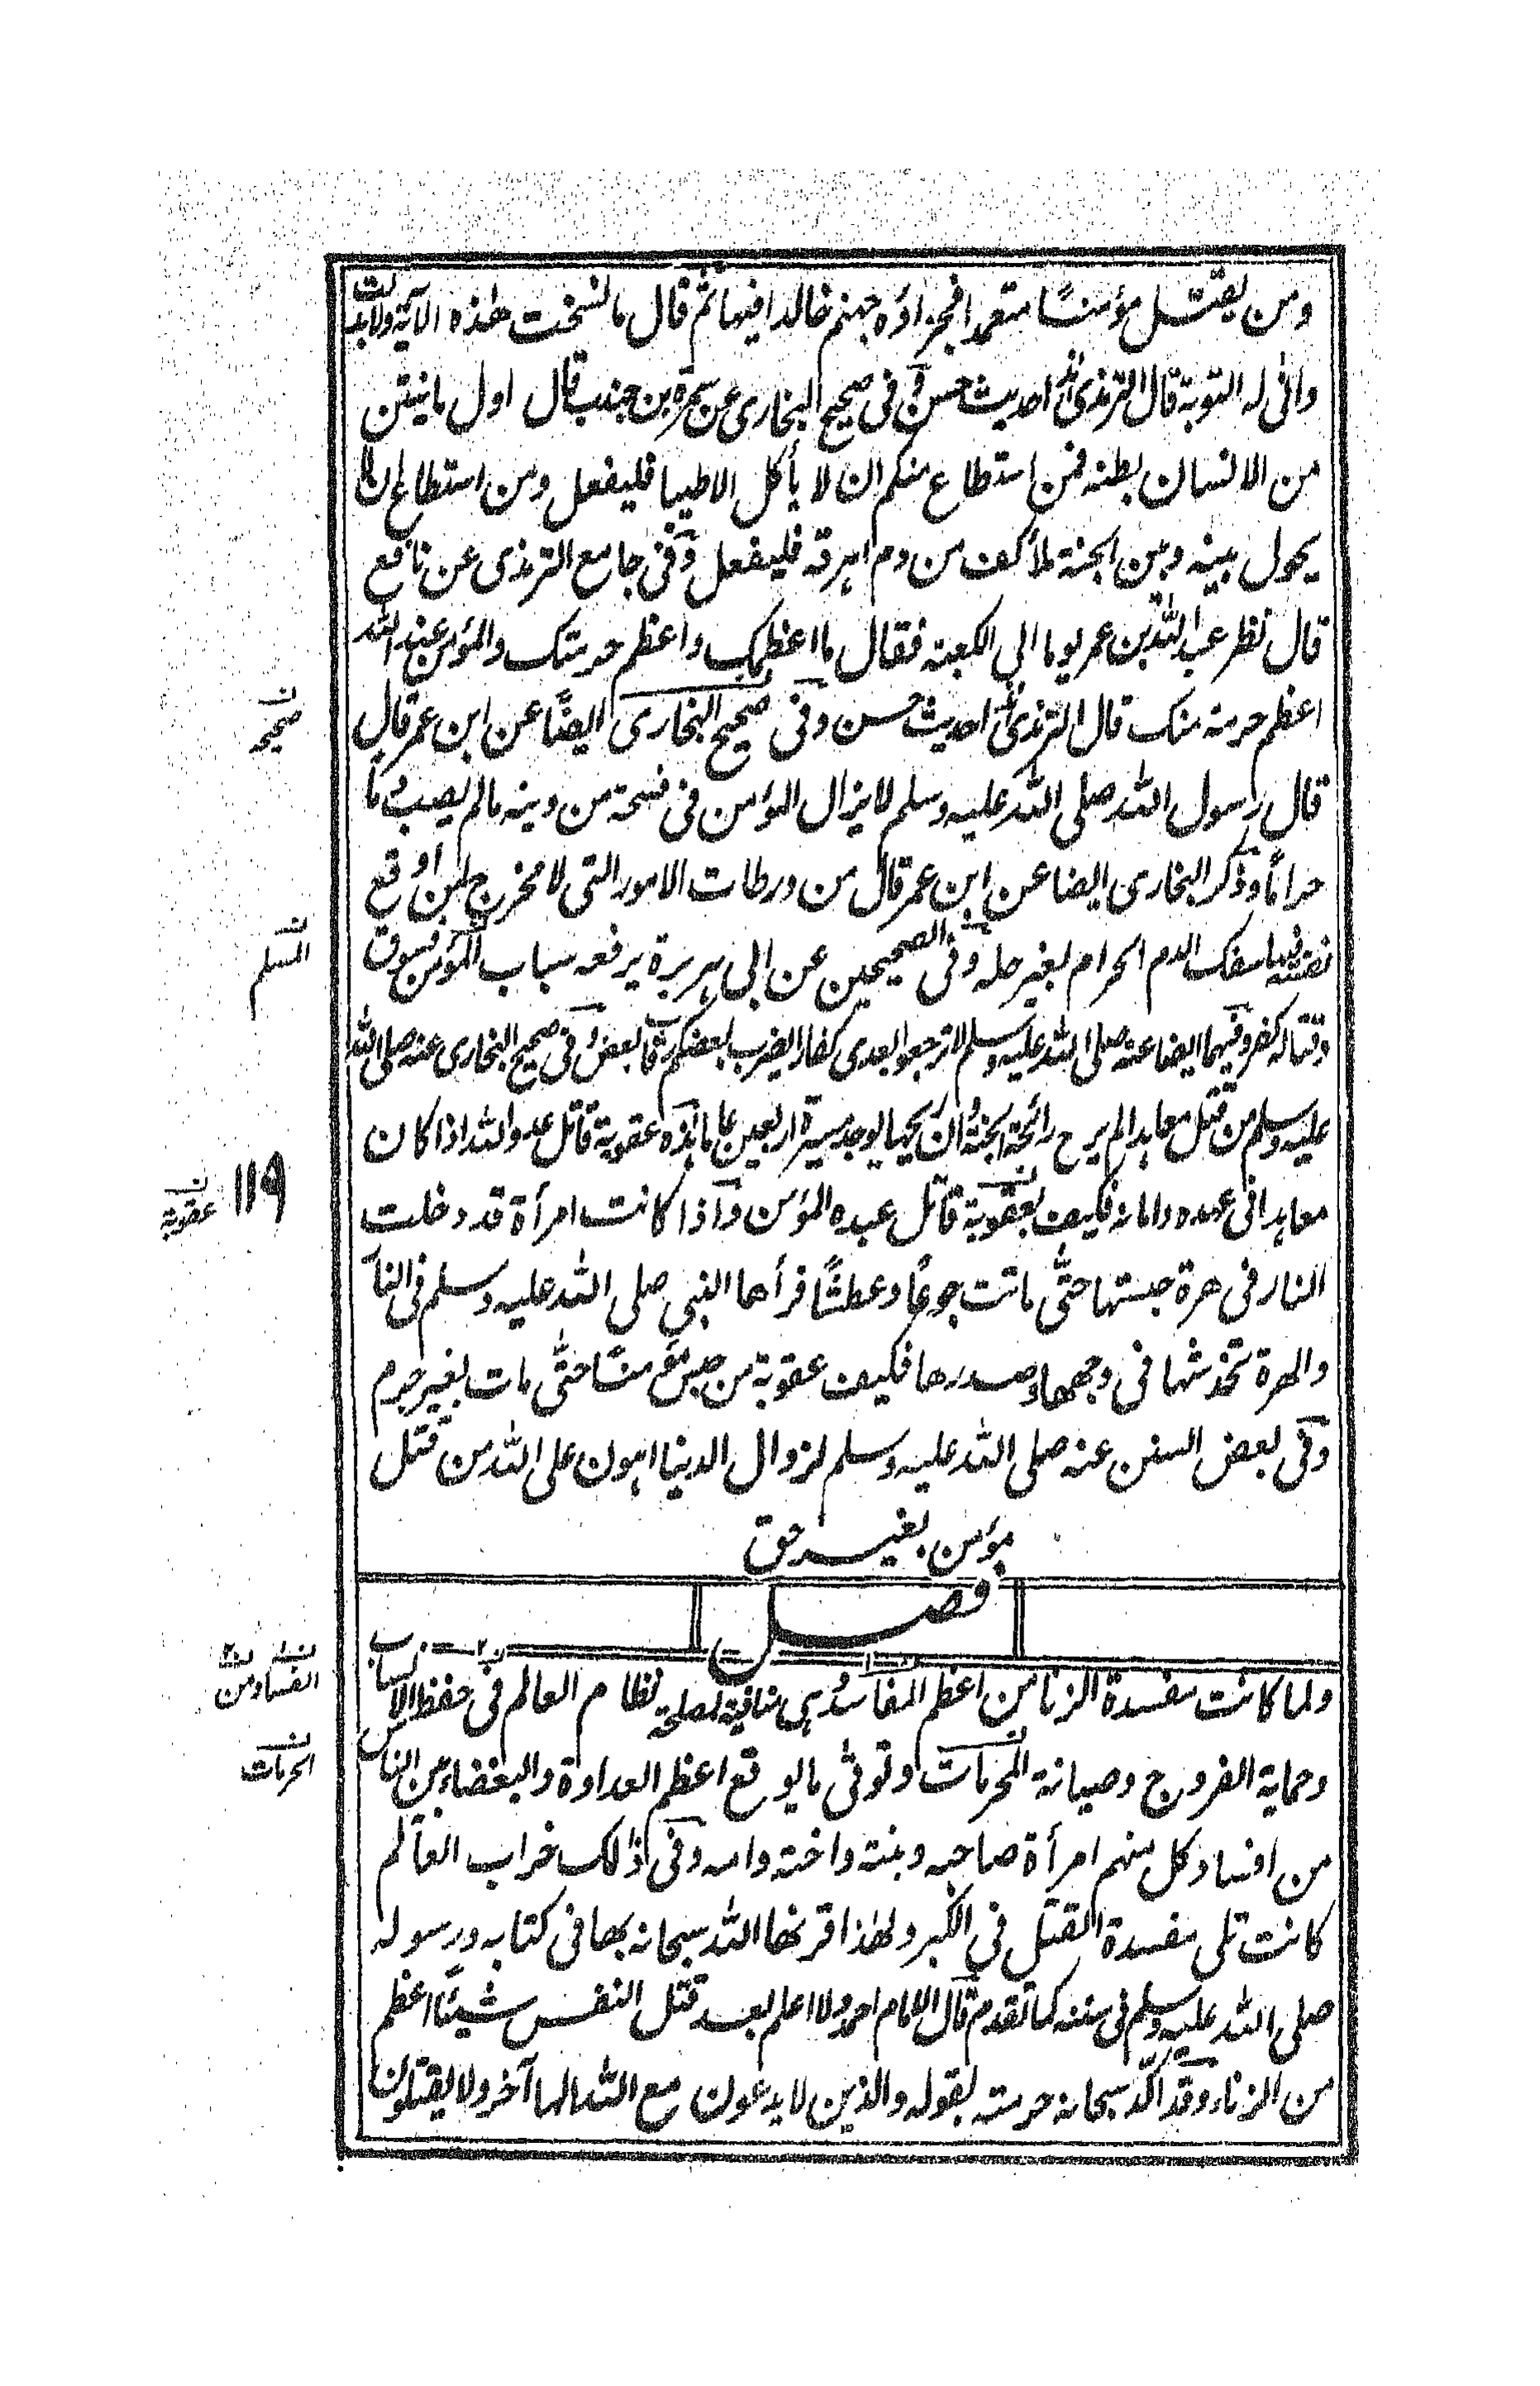 ومن يقتل مؤمنًا متعمدا فجزاؤه جهنم خالدا فيها ثم قال ما نسخت هذه الآية ولا بدلت
وانى له التوبة قال الترمذى هذا حديث حسن وفى صحيح البخارى عن سمرة بن جندب قال اول ما ينتن
من الانسان بطنه فمن استطاع منكم ان لا يأكل الا طيبا فليفعل ومن استطاع ان لا
يحول بينه وبين الجنة ملأ كف من دم اهرقه فليفعل وفى جامع الترمذى عن نافع
قال نظر عبد الله بن عمر يوما الى الكعبة فقال ما اعظمك واعظم حرمتك والمؤمن عند الله
اعظم حرمة منك قال الترمذى هذا حديث حسن وفى صحيح البخارى ايضًا عن ابن عمر قال
صحيحه
قال رسول الله صلى الله عليه وسلم لا يزال المؤمن فى فسحة من دينه ما لم يصب دمًا
حرامًا وذكر البخارى ايضا عن ابن عمر قال من ورطات الامور التى لا مخرج لمن اوقع
نفسه فيها سفك الدم الحرام بغير حله وفى الصحيحين عن ابى هريرة يرفعه سباب المؤمن فسوق
المسلم
وقتاله كفر وفيهما ايضا عنه صلى الله عليه وسلم لا ترجعوا بعدى كفارا يضرب بعضكم رقاب بعض وفى صحيح البخارى عنه صلى الله
عليه وسلم من قتل معاهدا لم يرح رائحة الجنة وان ريحها يوجد مسيرة اربعين عاما هذه عقوبة قاتل عدو الله اذا كان
معاهدا فى عهده وامانه فكيف بعقوبة قاتل عبده المؤمن واذا كانت امرأة قد دخلت
عقوبة
١١٩
النار فى هرة حبستها حتى ماتت جوعًا وعطشًا فرأها النبى صلى الله عليه وسلم فى النار
والهرة تخدشها فى وجهها وصدرها فكيف عقوبة من حبس مؤمنًا حتى مات بغير جرم
وفى بعض السنن عنه صلى الله عليه وسلم لزوال الدنيا اهون على الله من قتل
مؤمن بغير حق
فصل
ولما كانت مفسدة الزنا من اعظم المفاسد وهى منافية لمصلحة نظام العالم فى حفظ الانساب
الفساد من
وحماية الفروج وصيانة المحرمات وتوقى ما يوقع اعظم العداوة والبغضاء بين الناس
الحرمات
من افساد كل منهم امرأة صاحبه وبنته واخته وامه وفى ذالك خراب العالم
كانت تلى مفسدة القتل فى الكبر ولهذا قرنها الله سبحانه بها فى كتابه ورسوله
صلى الله عليه وسلم فى سننه كما تقدم قال الامام احمد ولا اعلم بعد قتل النفس شيئًا اعظم
من الزناء وقد اكّد سبحانه حرمته بقوله والذين لا يدعون مع الله الها آخر ولا يقتلون